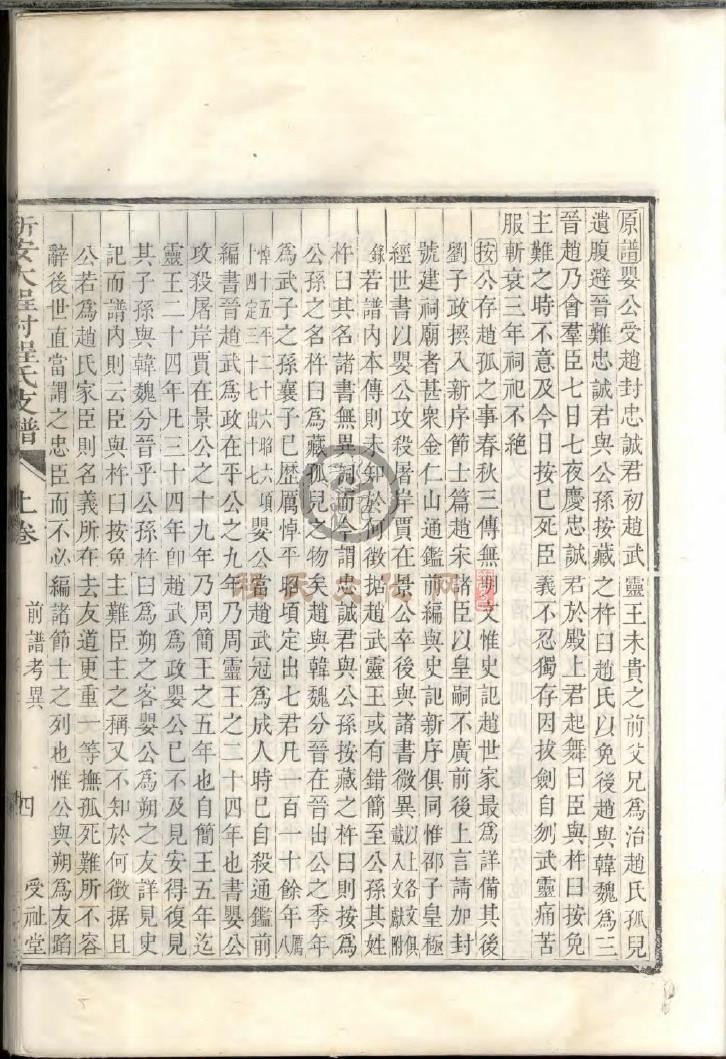 原譜嬰公受趙封忠誠君初趙武靈王未貴之前父兄爲治趙氏孤兒
遺腹避晉難忠誠君與公孫按藏之杵曰趙氏以免後趙與韓魏爲三
晉趙乃會羣臣七日七夜慶忠誠君於殿上君起舞曰臣與杵曰按免
主難之時不意及今日按巳死臣義不忍獨存因拔劍自刎武靈痛苦
服斬衰三年祠祀不絕
按公存趙孤之事春秋三傳無明文惟史記趙世家最爲詳備其後
劉子政撰入新序節士篇趙宋諸臣以皇嗣不廣前後上言請加封
號建祠廟者甚衆金仁山通鑑前編與史記新序俱同惟邵子皇極
經世書以嬰公攻殺屠岸賈在景公卒後與諸書微異以上各文俱載入文獻附
錄若譜內本傳則未知於何徵据趙武靈王或有錯簡至公孫其姓
杵曰其名諸書無異詞而今謂忠誠君與公孫按藏之杵曰則按爲
公孫之名杵曰爲藏孤兒之物矣趙與韓魏分晉在晉出公之季年
爲武子之孫襄子巳歷厲悼平昭頃定出七君凡一百一十餘年厲八
悼十五平二十六昭六頃十四定三十七出十七嬰公當趙武冠爲成人時巳自殺通鑑前
編書晉趙武爲政在平公之九年乃周靈王之二十四年也書嬰公
攻殺屠岸賈在景公之十九年乃周簡王之五年也自簡王五年迄
靈王二十四年凡三十四年卽趙武爲政嬰公巳不及見安得復見
其子孫與韓魏分晉乎公孫杵曰爲朔之客嬰公爲朔之友詳見史
記而譜內則云臣與杵曰按免主難臣主之稱又不知於何徵据且
公若爲趙氏家臣則名義所在去友道更重一等撫孤死難所不容
辭後世直當謂之忠臣而不必編諸節士之列也惟公與朔爲友蹈
新安大程村程氏支譜 上卷 前譜考異 四 受祉堂
程氏文化网